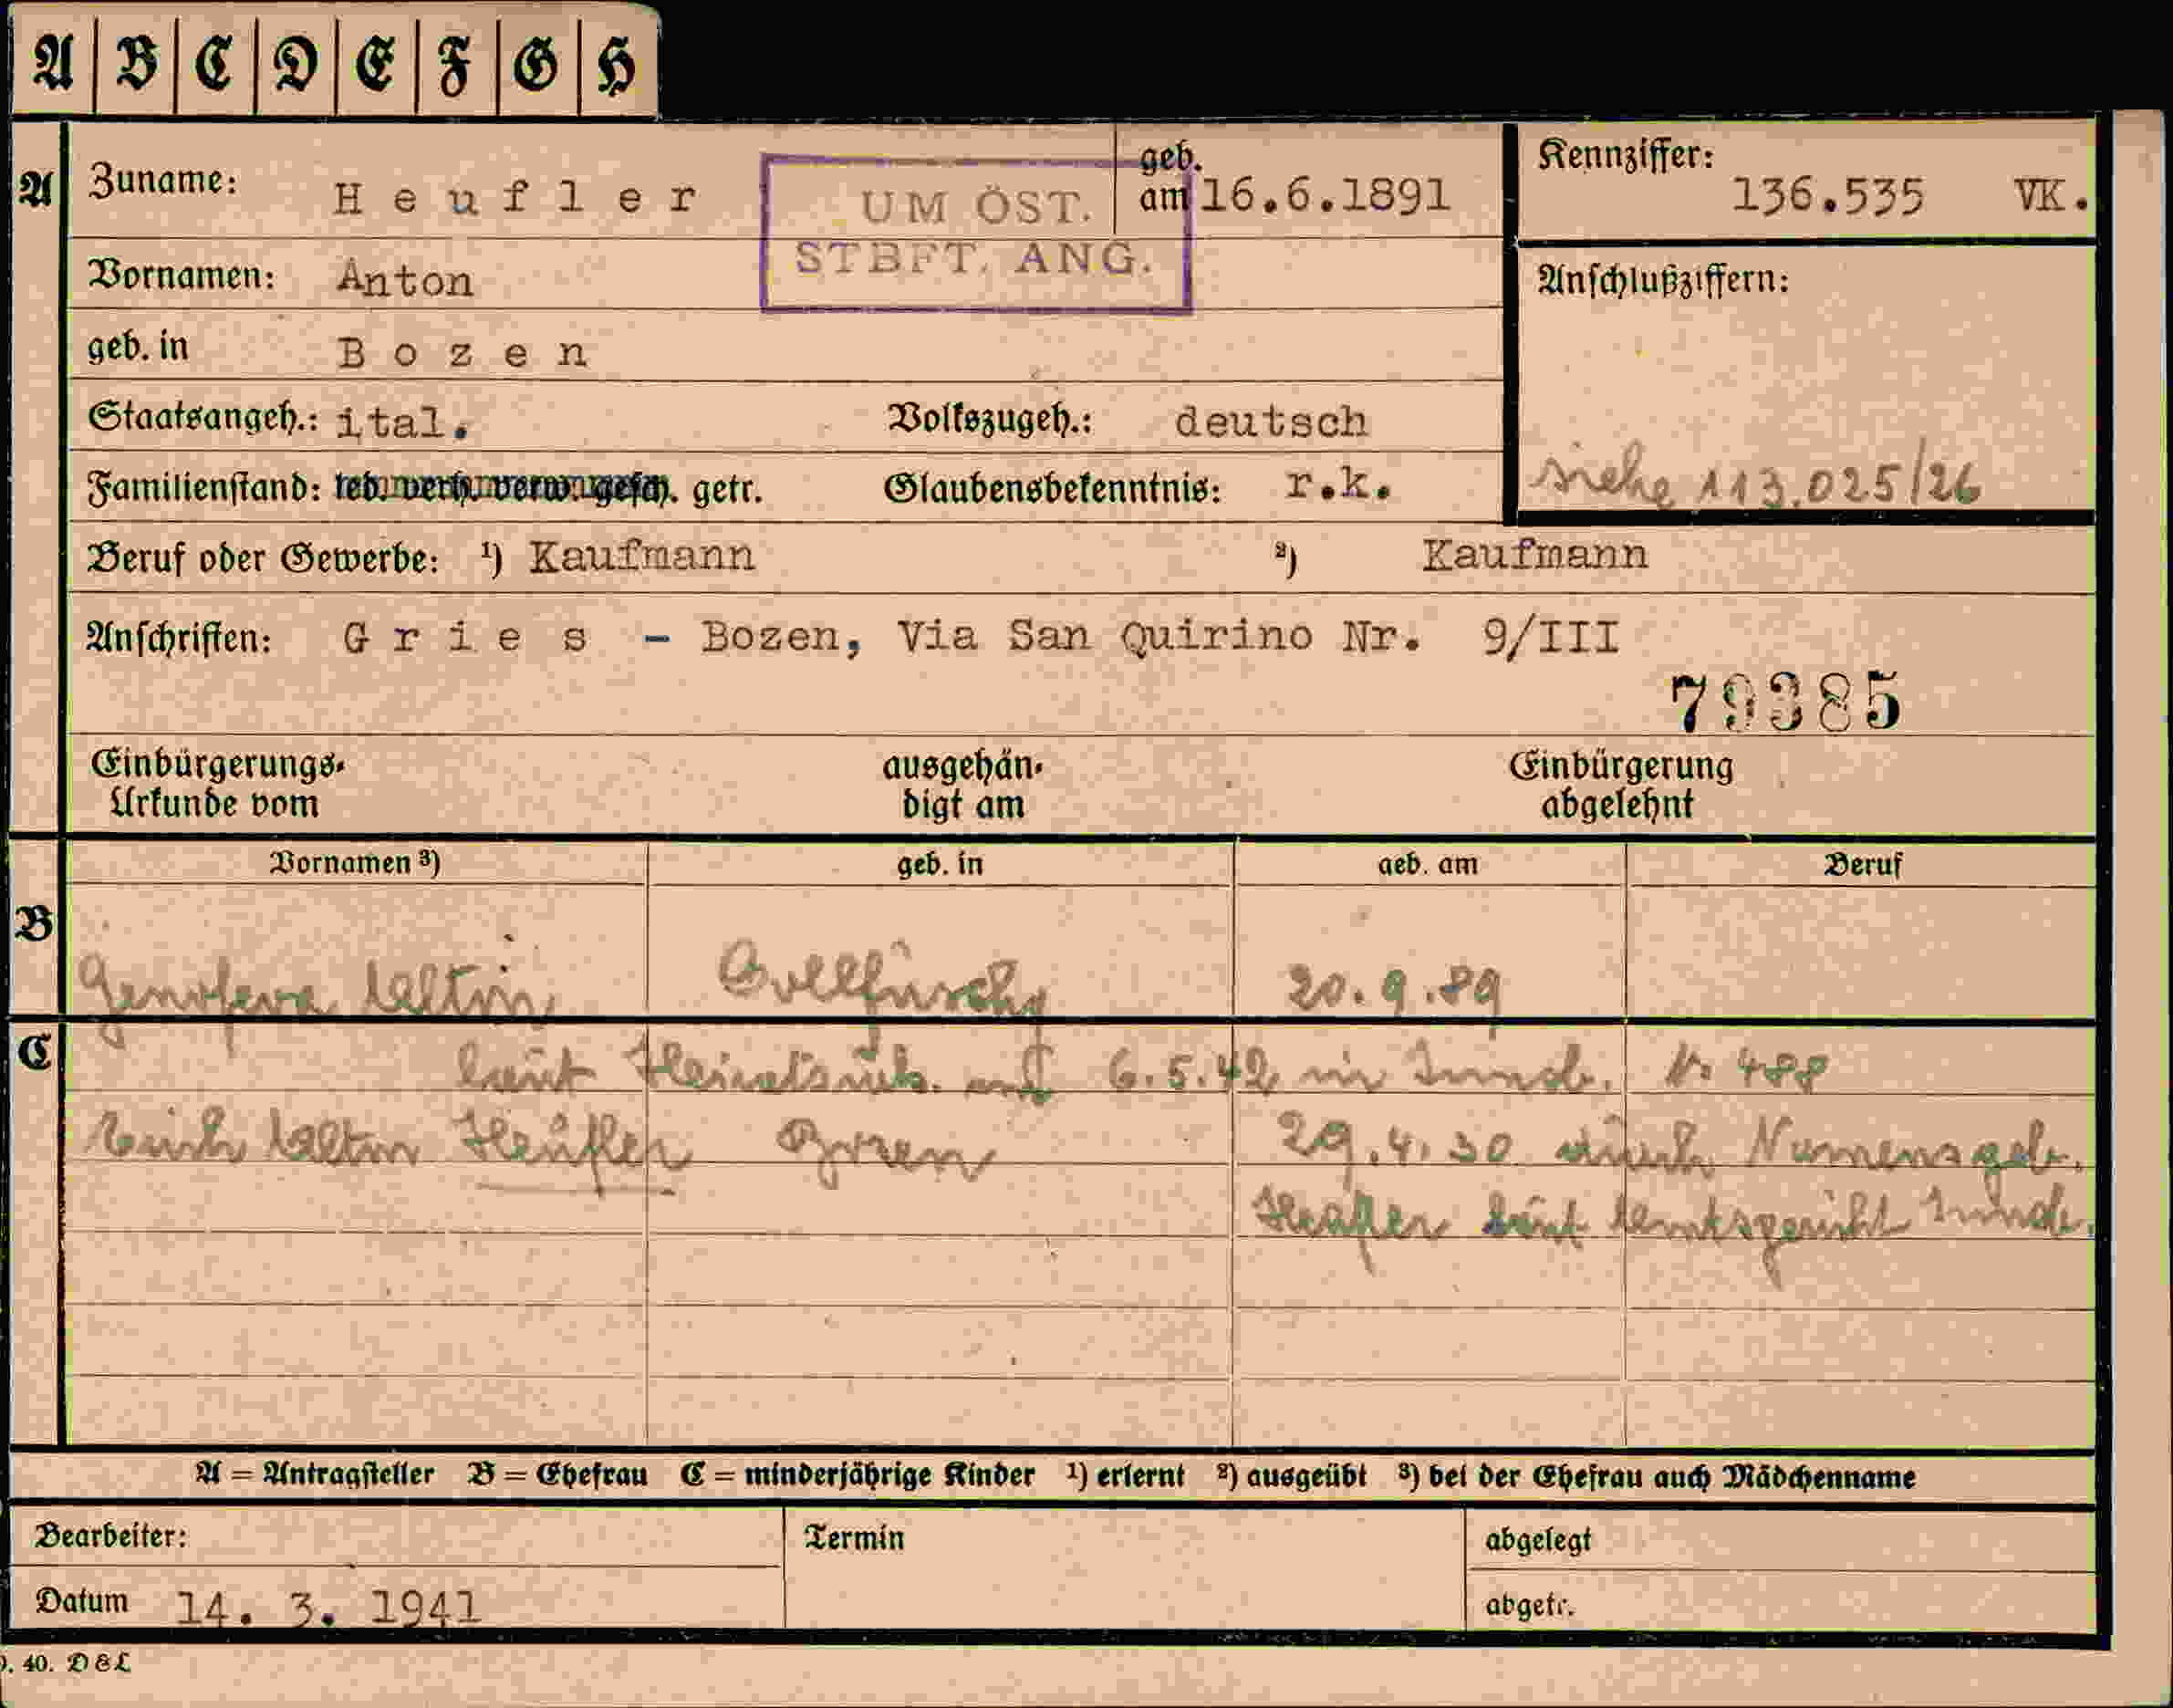 A B C D E F G H
A Zuname: Heufler geb. am 16.6.1891 Kennziffer: 136.535 VK.
UM ÖST.
STBFT. ANG.
Vornamen: Anton Anschlußziffern:
geb. in Bozen
Staatsangeh.: ital. Volkszugeh.: deutsch
siehe 113.025/26
Familienstand: led. verh. verw. gesch. getr. Glaubensbekenntnis: r.k.
Beruf oder Gewerbe: ¹) Kaufmann ²) Kaufmann
Anschriften: Gries - Bozen, Via San Quirino Nr. 9/III
79385
Einbürgerungs- ausgehän- Einbürgerung
Urkunde vom digt am abgelehnt
Vornamen ³) geb. in geb. am Beruf
B
Genofeva 20.9.89
C
laut 6.5.42 in Innsb. 488
Heufler Bozen 29.4.30 durch Namensgeb.
Heufler laut Amtsgericht Innsb.
A = Antragsteller B = Ehefrau C = minderjährige Kinder ¹) erlernt ²) ausgeübt ³) bei der Ehefrau auch Mädchenname
Bearbeiter: Termin abgelegt
Datum 14. 3. 1941 abgetr.
40. D&L